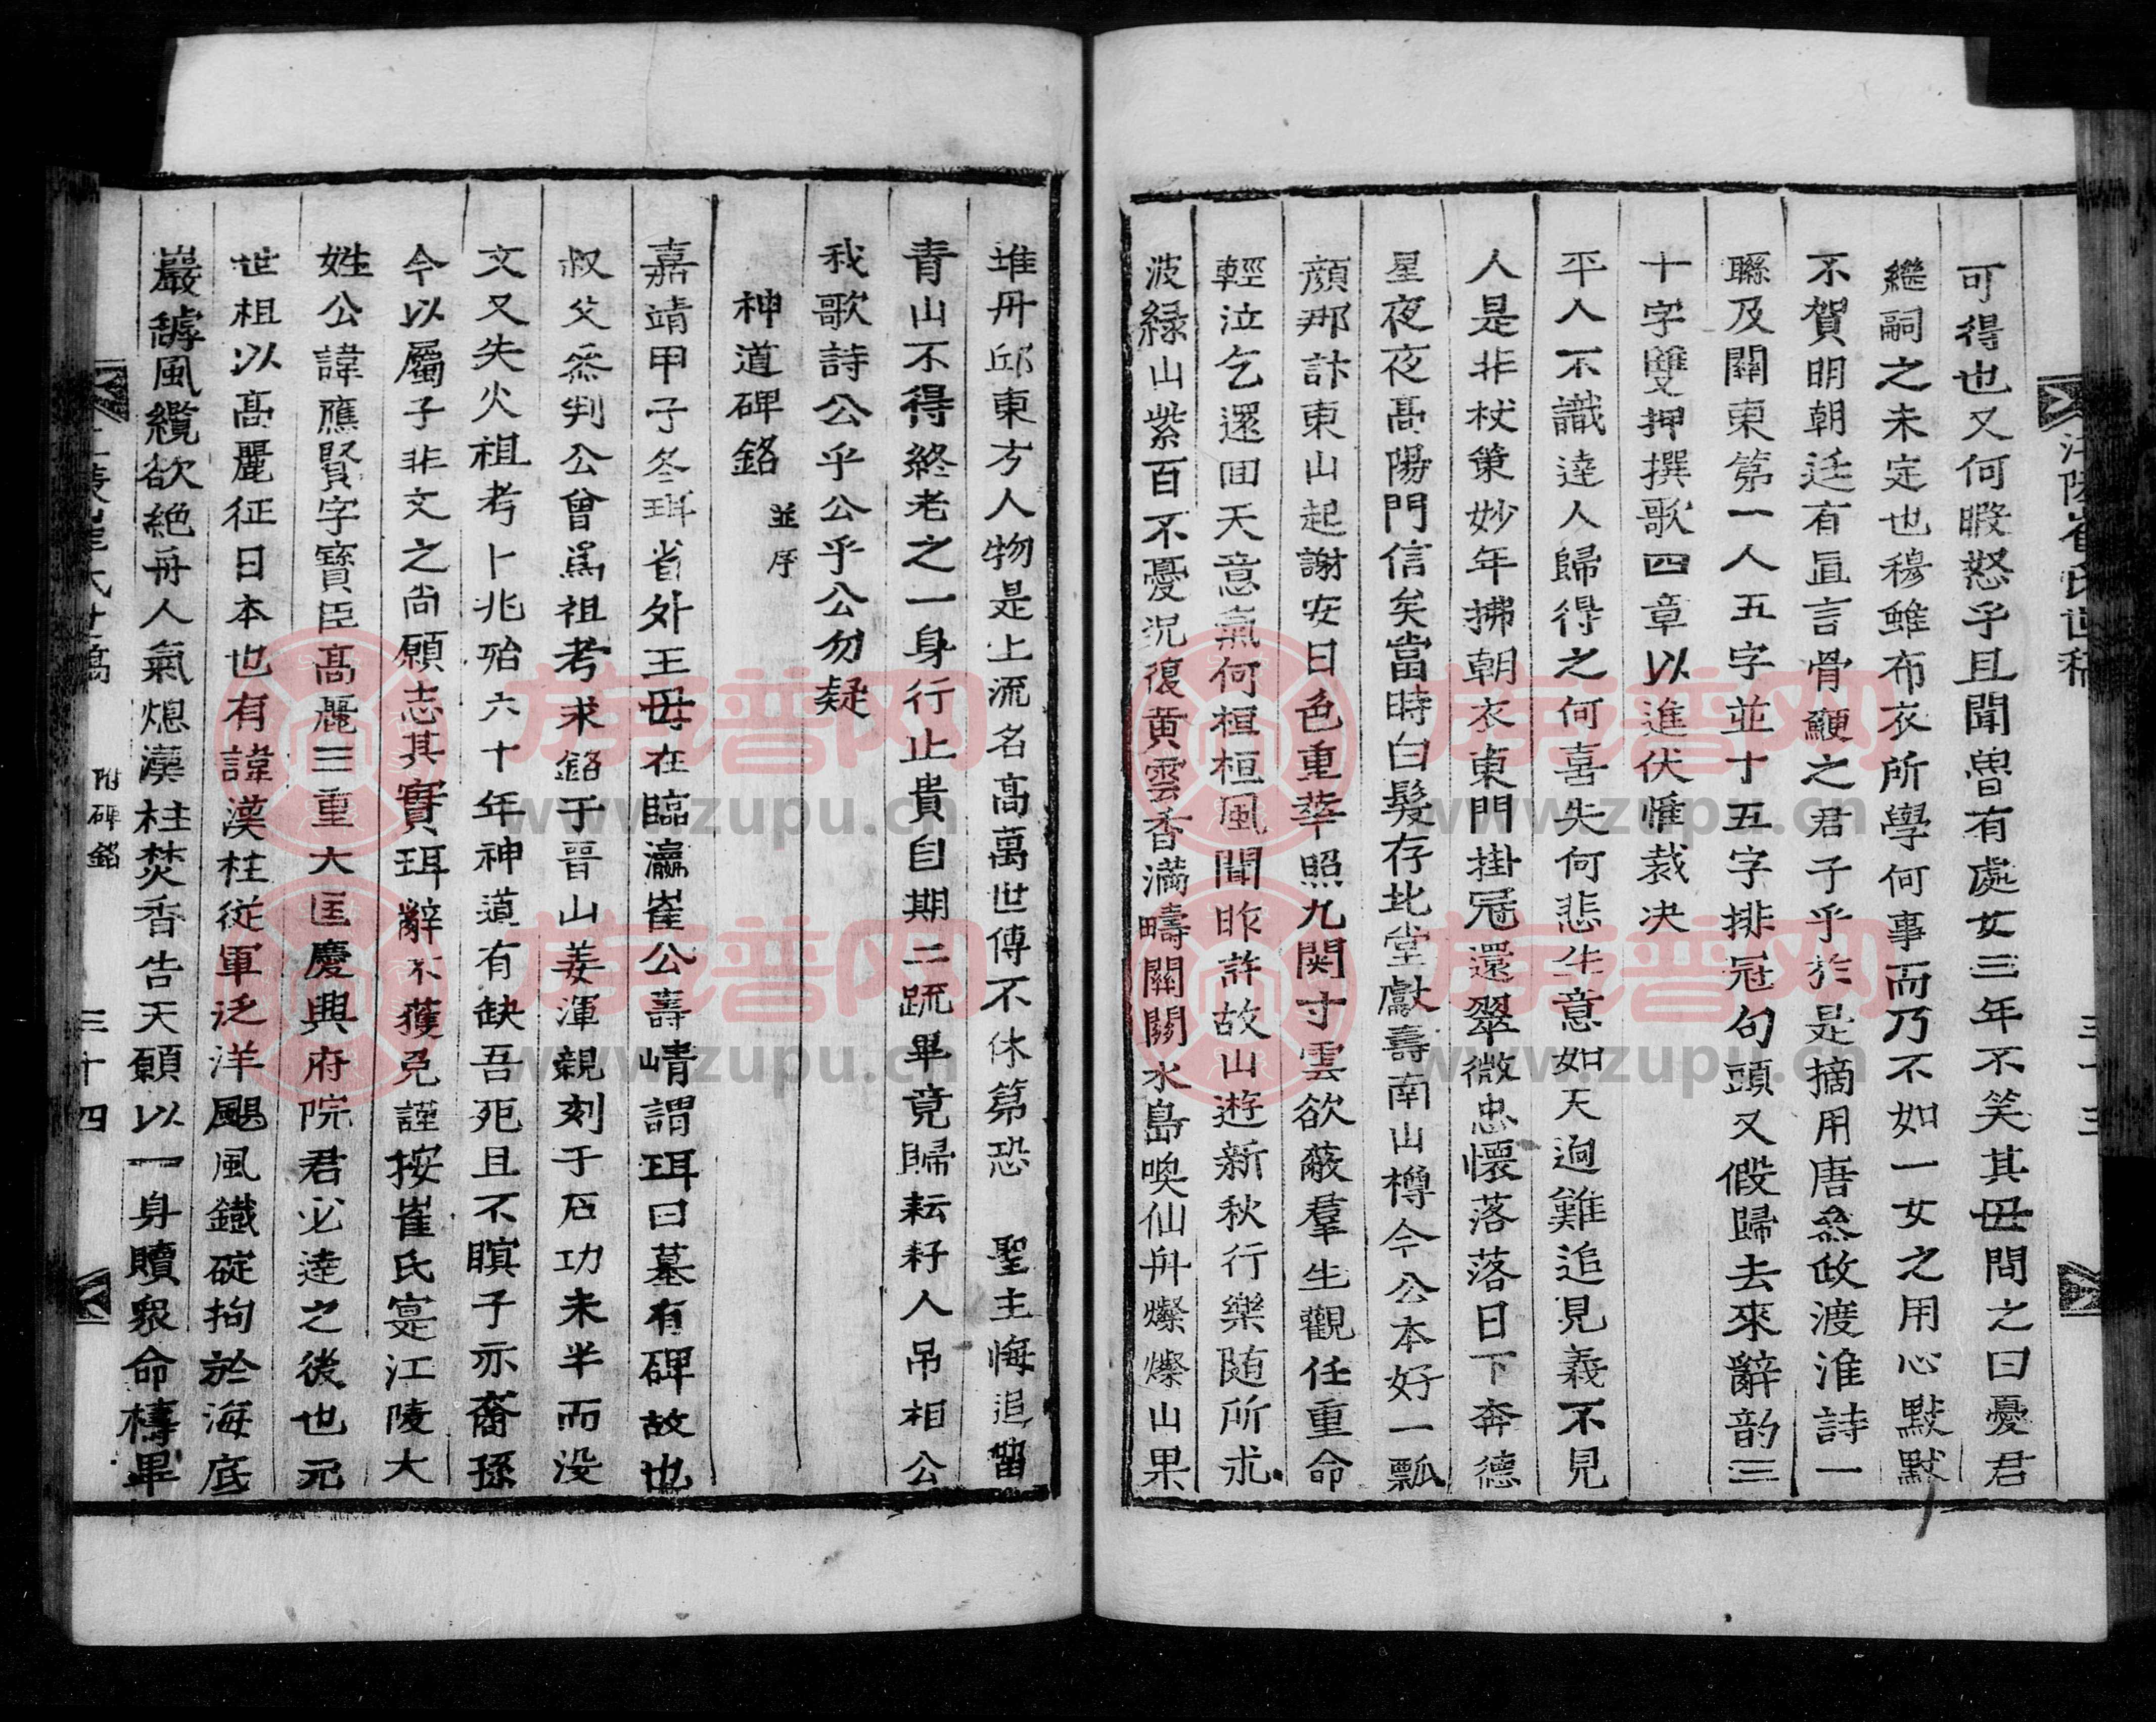 江陵崔氏世稿
三十三
可得也又何暇怒乎且聞魯有處女三年不笑其毋問之曰憂君
繼嗣之未定也穆雖布衣所學何事而乃不如一女之用心默默
不賀明朝廷有直言骨鯁之君子乎於是摘用唐叅政渡淮詩一
聯及關東第一人五字並十五字排冠句頭又假歸去來辭韵三
十字雙押撰歌四章以進伏惟裁决
平人不識達人歸得之何喜失何悲生意如天逈難追見義不見
人是非杖策妙年拂朝衣東門掛冠還翠微忠懷落落日下奔德
星夜夜高陽門信矣當時白髮存北堂獻壽南山樽今公本好一瓢
顔那訃東山起謝安日色重華照九関寸雲欲蔽羣生觀任重命
輕泣乞還囬天意氣何桓桓風聞昨許故山遊新秋行樂随所求
波緑山紫百不憂況復黃雲香滿疇關關水島喚仙舟燦燦山果
堆丹邱東方人物是上流名高萬世傳不休第恐 聖主悔追留
青山不得終老之一身行止貴自期二疏畢竟歸耘耔人吊相公
我歌詩公乎公乎公勿疑
神道碑銘 並序
嘉靖甲子冬珥省外王毋在臨瀛崔公壽㟡謂珥曰墓有碑故也
叔父叅判公曾爲祖考求銘于晋山姜渾親刻于石功未半而没
文又失火祖考卜兆殆六十年神道有缺吾死且不瞑子亦裔孫
今以屬子非文之尚願志其實珥辭不獲免謹按崔氏寔江陵大
姓公諱應賢字寶臣高麗三重大匡慶興府院君必達之後也元
世祖以高麗征日本也有諱漢柱從軍泛洋颶風鐵碇拘於海底
巖罅風纜欲絶舟人氣熄漢柱焚香告天願以一身贖衆命禱畢
附碑銘
三十四
族谱网
www.zupu.cn
族谱网
www.zupu.cn
族谱网
www.zupu.cn
族谱网
www.zupu.cn